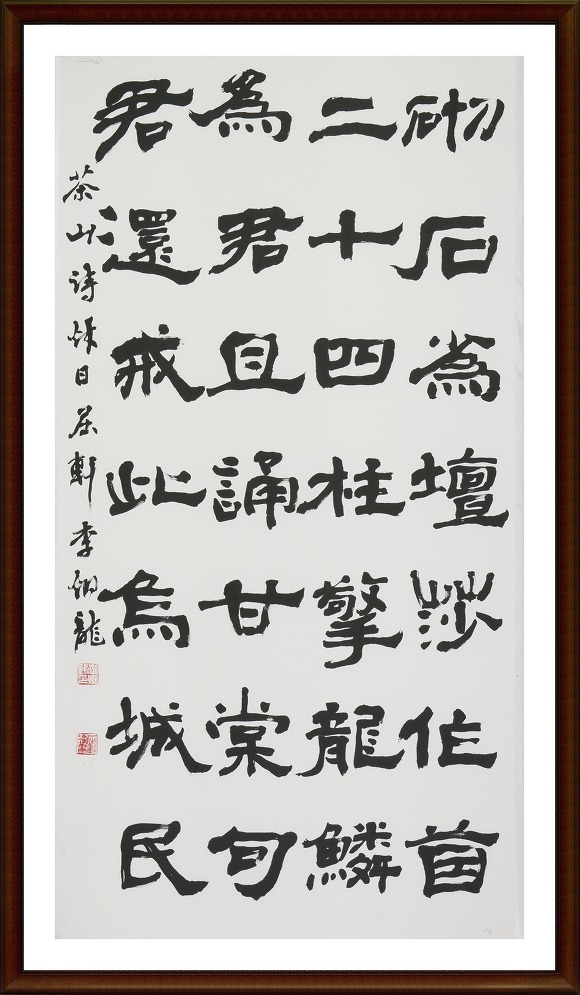 砌石為壇莎作茵
二十四柱擎龍鱗
為君且誦甘棠句
君還戒此烏城民
茶山詩秌日 軒李 龍